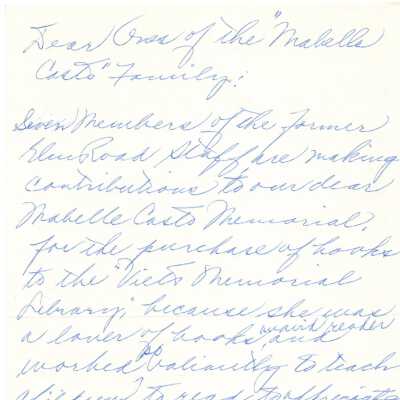 Dear Ones of the "Mabelle
Casto" Family:
Seven Members of the former
Elm Road Staff are making
contributions to our dear
Mabelle Casto Memorial,
for the purchase of books
to the "Viets Memorial
Library," because she was
a lover of books, avid reader and
worked so valiantly to teach
to read, to appreciate